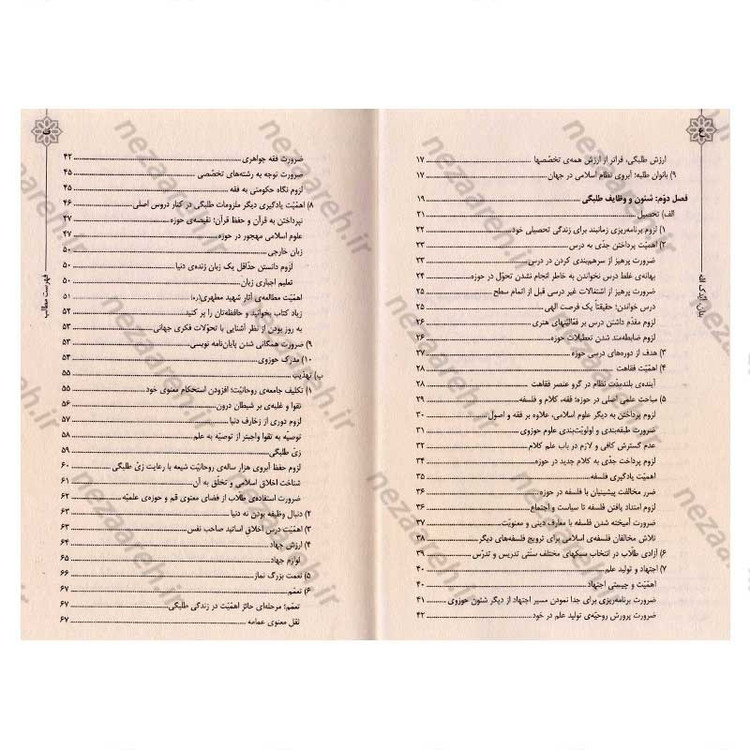 ارزش طلبگی، فراتر از ارزش همه‌ی تخصّصها ۱۷
۹) بانوان طلبه؛ آبروی نظام اسلامی در جهان ۱۷
فصل دوّم: شئون و وظایف طلبگی ۱۹
الف) تحصیل ۲۱
۱) لزوم برنامه‌ریزی زمانبند برای زندگی تحصیلی خود ۲۲
۲) اهمّیّت پرداختن جدّی به درس ۲۲
ضرورت پرهیز از سرهم‌بندی کردن در درس ۲۳
بهانه‌ی غلط درس نخواندن به خاطر انجام نشدن تحوّل در حوزه ۲۴
ضرورت پرهیز از اشتغالات غیر درسی قبل از اتمام سطح ۲۵
درس خواندن؛ حقیقتاً یک فرصت الهی ۲۵
لزوم مقدّم داشتن درس بر فعّالیّتهای هنری ۲۶
لزوم ضابطه‌مند شدن تعطیلات حوزه ۲۶
۳) هدف از دوره‌های درسی حوزه ۲۷
۴) اهمّیّت فقاهت ۲۸
آینده‌ی بلندمدّت نظام در گرو عنصر فقاهت ۲۸
۵) مباحث علمی اصلی در حوزه: فقه، کلام و فلسفه ۲۹
لزوم پرداختن به دیگر علوم اسلامی، علاوه بر فقه و اصول ۳۰
ضرورت طبقه‌بندی و اولویّت‌بندی علوم حوزوی ۳۱
عدم گسترش کافی و لازم در باب علم کلام ۳۲
لزوم پرداخت جدّی به کلام جدید در حوزه ۳۴
اهمّیّت یادگیری فلسفه ۳۵
ضرر مخالفت پیشینیان با فلسفه در حوزه ۳۶
لزوم امتداد یافتن فلسفه تا سیاست و اجتماع ۳۶
ضرورت آمیخته شدن فلسفه با معارف دینی و معنویّت ۳۷
تلاش مخالفان فلسفه‌ی اسلامی برای ترویج فلسفه‌های دیگر ۳۸
۶) آزادی طلّاب در انتخاب سبکهای مختلف سنّتی تدریس و تدرّس ۳۹
۷) اجتهاد و تولید علم ۴۰
اهمّیّت و چیستی اجتهاد ۴۰
ضرورت برنامه‌ریزی برای جدا نمودن مسیر اجتهاد از دیگر شئون حوزوی ۴۱
ضرورت پرورش روحیّه‌ی تولید علم در خود ۴۲
فهرست مطالب
ضرورت فقه جواهری ۴۲
ضرورت توجه به رشته‌های تخصّصی ۴۵
لزوم نگاه حکومتی به فقه ۴۵
۸) اهمّیّت یادگیری دیگر ملزومات طلبگی در کنار دروس اصلی ۴۶
نپرداختن به قرآن و حفظ قرآن؛ نقیصه‌ی حوزه ۴۷
علوم اسلامی مهجور در حوزه ۴۷
زبان خارجی ۵۰
لزوم دانستن حدّاقل یک زبان زنده‌ی دنیا ۵۰
تعلیم اجباری زبان ۵۰
اهمّیّت مطالعه‌ی آثار شهید مطهری(ره) ۵۱
زیاد کتاب بخوانید و حافظه‌تان را پر کنید ۵۲
به روز بودن از نظر آشنایی با تحوّلات فکری جهانی ۵۳
۹) ضرورت همگانی شدن پایان‌نامه نویسی ۵۳
۱۰) مدرک حوزوی ۵۴
ب) تهذیب ۵۵
۱) تکلیف جامعه‌ی روحانیّت؛ افزودن استحکام معنوی خود ۵۵
تقوا و غلبه‌ی بر شیطان درون ۵۶
لزوم دوری از زخارف دنیا ۵۷
توصیّه به تقوا واجبتر از توصیّه به علم ۵۸
زیّ طلبگی ۵۹
لزوم حفظ آبروی هزار ساله‌ی روحانیّت شیعه با رعایت زیّ طلبگی ۶۰
شناخت اخلاق اسلامی و تخلّق به آن ۶۱
ضرورت استفاده‌ی طلّاب از فضای معنوی قم و حوزه‌ی علمیّه ۶۲
۲) دنبال وظیفه بودن نه دنیا ۶۲
۳) اهمّیّت درس اخلاق اساتید صاحب نفس ۶۳
۴) ارزش جهاد ۶۴
لوازم جهاد ۶۵
۵) نعمت بزرگ نماز ۶۶
۶) تعمّم ۶۷
تعمّم؛ مرحله‌ای حائز اهمّیّت در زندگی طلبگی ۶۷
ثقل معنوی عمامه ۶۷
nezaareh.ir